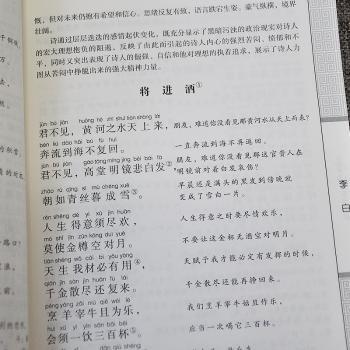 慨，但对未来仍抱有希望和信心。思绪反复有致，语言跌宕生姿。豪气纵横，境界
壮阔。
诗通过层层迭迭的感情起伏变化，既充分显示了黑暗污浊的政治现实对诗人
的宏大理想抱负的阻遏，反映了由此而引起的诗人内心的强烈苦闷、愤郁和不
平，同时又突出表现了诗人的倔强、自信和他对理想的执着追求，展示了诗人力
图从苦闷中挣脱出来的强大精神力量。
将进酒①
jūn bú jiàn huáng hé zhī shuǐ tiān shàng lái
君不见，黄河之水天上来，朋友，难道你没看见那黄河水从天上而来？
bēn liú dào hǎi bú fù huí
奔流到海不复回。一直奔流到海不再退回。
jūn bú jiàn gāo táng míng jìng bēi bái fà
君不见，高堂明镜悲白发②
朋友，难道你没看见那达官贵人在
明镜前对着白发哀伤？
zhāo rú qīng sī mù chéng xuě
朝如青丝暮成雪③。
早晨还是满头的黑发到傍晚就
变成了雪白一片。
rén shēng dé yì xū jìn huān
人生得意须尽欢，人生得意之时要尽情欢乐，
mò shǐ jīn zūn kōng duì yuè
莫使金樽空对月。不要让这金杯无酒空对明月。
tiān shēng wǒ cái bì yǒu yòng
天生我材必有用④，天赋予我才能必定有发挥的时候，
qiān jīn sàn jìn huán fù lái
千金散尽还复来。千金散尽还能再挣回来。
pēng yáng zǎi niú qiě wéi lè
烹羊宰牛且为乐，我们烹羊宰牛姑且作乐，
huì xū yì yǐn sān bǎi bēi
会须一饮三百杯⑤。应当一次喝它三百杯。
李
白